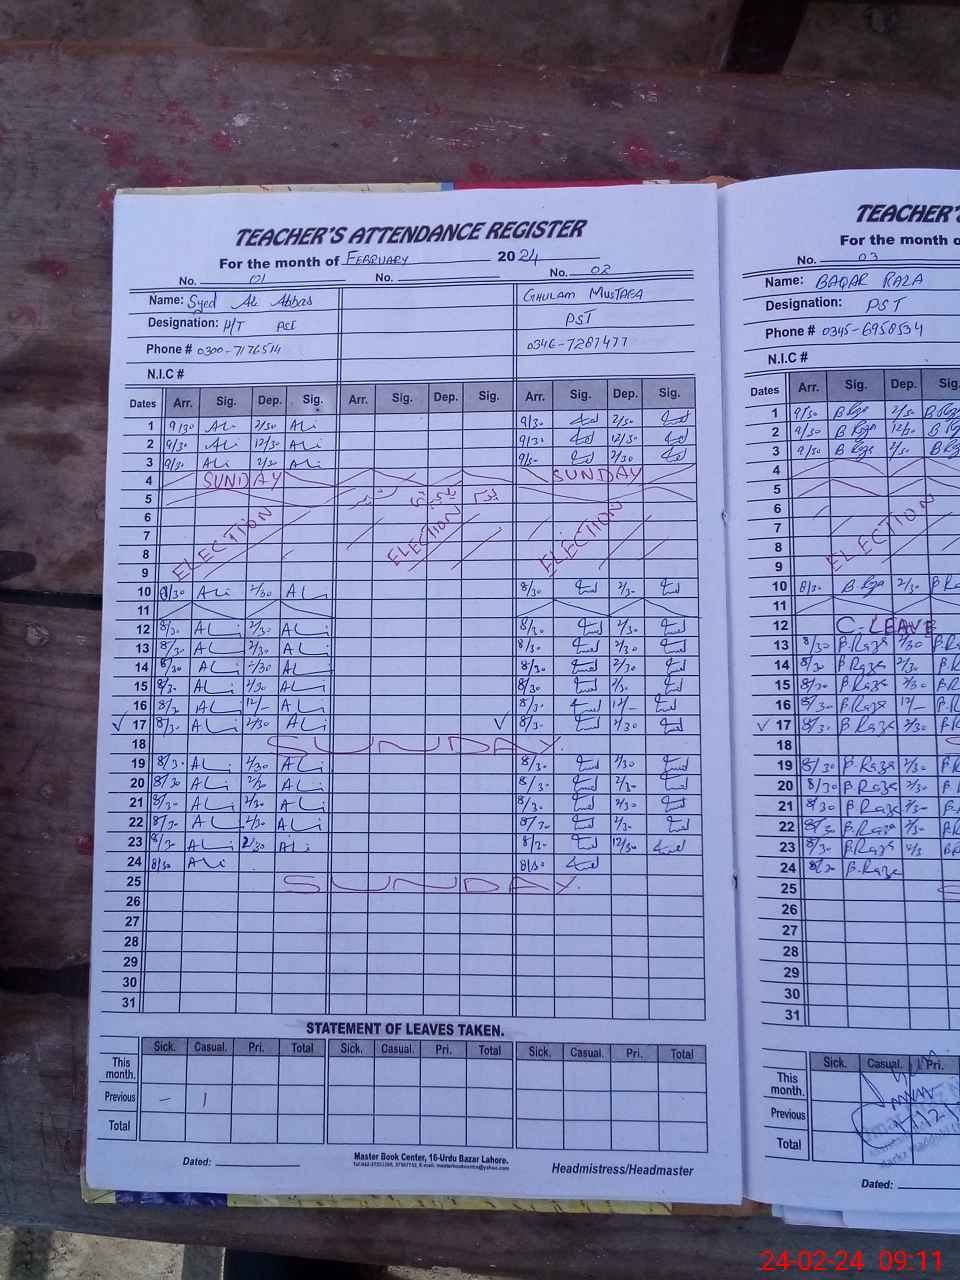 TEACHER'S ATTENDANCE REGISTER
For the month of FEBRUARY 2024
No. 01 No. No. 02
Name: Syed Ali Abbas GHULAM MUSTAFA
Designation: H/T PST
Phone # 0300-7176514 0346-7287477
N.I.C #
Dates Arr. Sig. Dep. Sig. Arr. Sig. Dep. Sig. Arr. Sig. Dep. Sig.
1 9/30 Ali 2/30 Ali 9/30 2/30
2 9/30 Ali 12/30 Ali 9/30 12/30
3 9/30 Ali 2/30 Ali 9/30 2/30
4 SUNDAY SUNDAY
5
6
7 ELECTION ELECTION ELECTION
8
9
10 8/30 Ali 2/30 ALi 8/30 2/30
11
12 8/30 ALi 2/30 ALi 8/30 2/30
13 8/30 ALi 2/30 ALi 8/30 2/30
14 8/30 ALi 2/30 ALi 8/30 2/30
15 8/30 ALi 2/30 ALi 8/30 2/30
16 8/30 ALi 12/- ALi 8/30 12/-
17 8/30 ALi 2/30 ALi 8/30 2/30
18 SUNDAY
19 8/30 ALi 2/30 ALi 8/30 2/30
20 8/30 ALi 2/30 ALi 8/30 2/30
21 8/30 ALi 2/30 ALi 8/30 2/30
22 8/30 ALi 2/30 ALi 8/30 2/30
23 8/30 ALi 2/30 ALi 8/30 12/30
24 8/30 ALi 8/30
25 SUNDAY
26
27
28
29
30
31
STATEMENT OF LEAVES TAKEN.
Sick. Casual. Pri. Total Sick. Casual. Pri. Total Sick. Casual. Pri. Total
This month.
Previous - 1
Total
Dated:
Master Book Center, 16-Urdu Bazar Lahore.
Headmistress/Headmaster
TEACHER'S
For the month o
No. 03
Name: BAQAR RAZA
Designation: PST
Phone # 0345-6958534
N.I.C #
Dates Arr. Sig. Dep. Sig.
1 9/30 B Raza 2/30 B Raza
2 9/30 B Raza 12/30 B Raza
3 9/30 B Raza 2/30 B Raza
4
5
6
7 ELECTION
8
9
10 8/30 B Raza 2/30 B Ra
11
12 C-LEAVE
13 8/30 B.Raza 2/30 B.Ra
14 8/30 B Raza 2/30 B.R
15 8/30 B.Raza 2/30 B.R
16 8/30 B.Raza 12/- B.R
17 8/30 B.Raza 2/30 B.R
18
19 8/30 B.Raza 2/30 B.R
20 8/30 B Raza 2/30 B.
21 8/30 B Raza 2/30 B.
22 8/30 B.Raza 2/30 B.
23 8/30 B.Raza B.R
24 8/30 B.Raza
25
26
27
28
29
30
31
Sick. Casual. Pri.
This month.
Previous
Total
Dated:
24-02-24 09:11